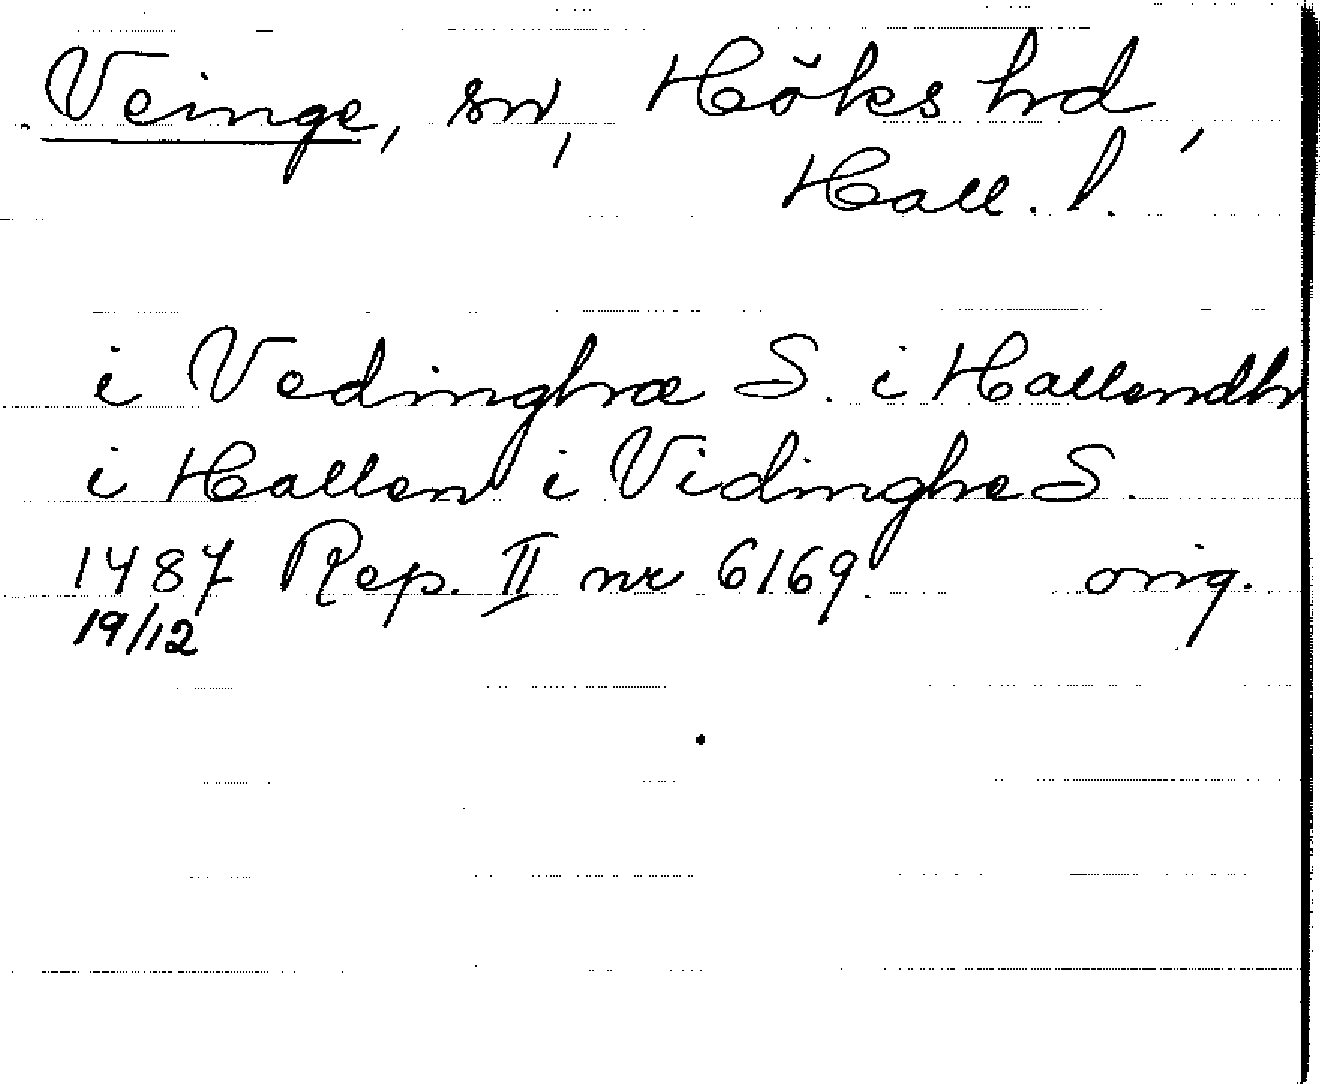 Veinge, sn, Höks hd,
Hall. l.
i Vedinghræ S. i Hallendh
i Hallen i Vidinghe S.
1487 Rep. II nr 6169 orig.
19/12